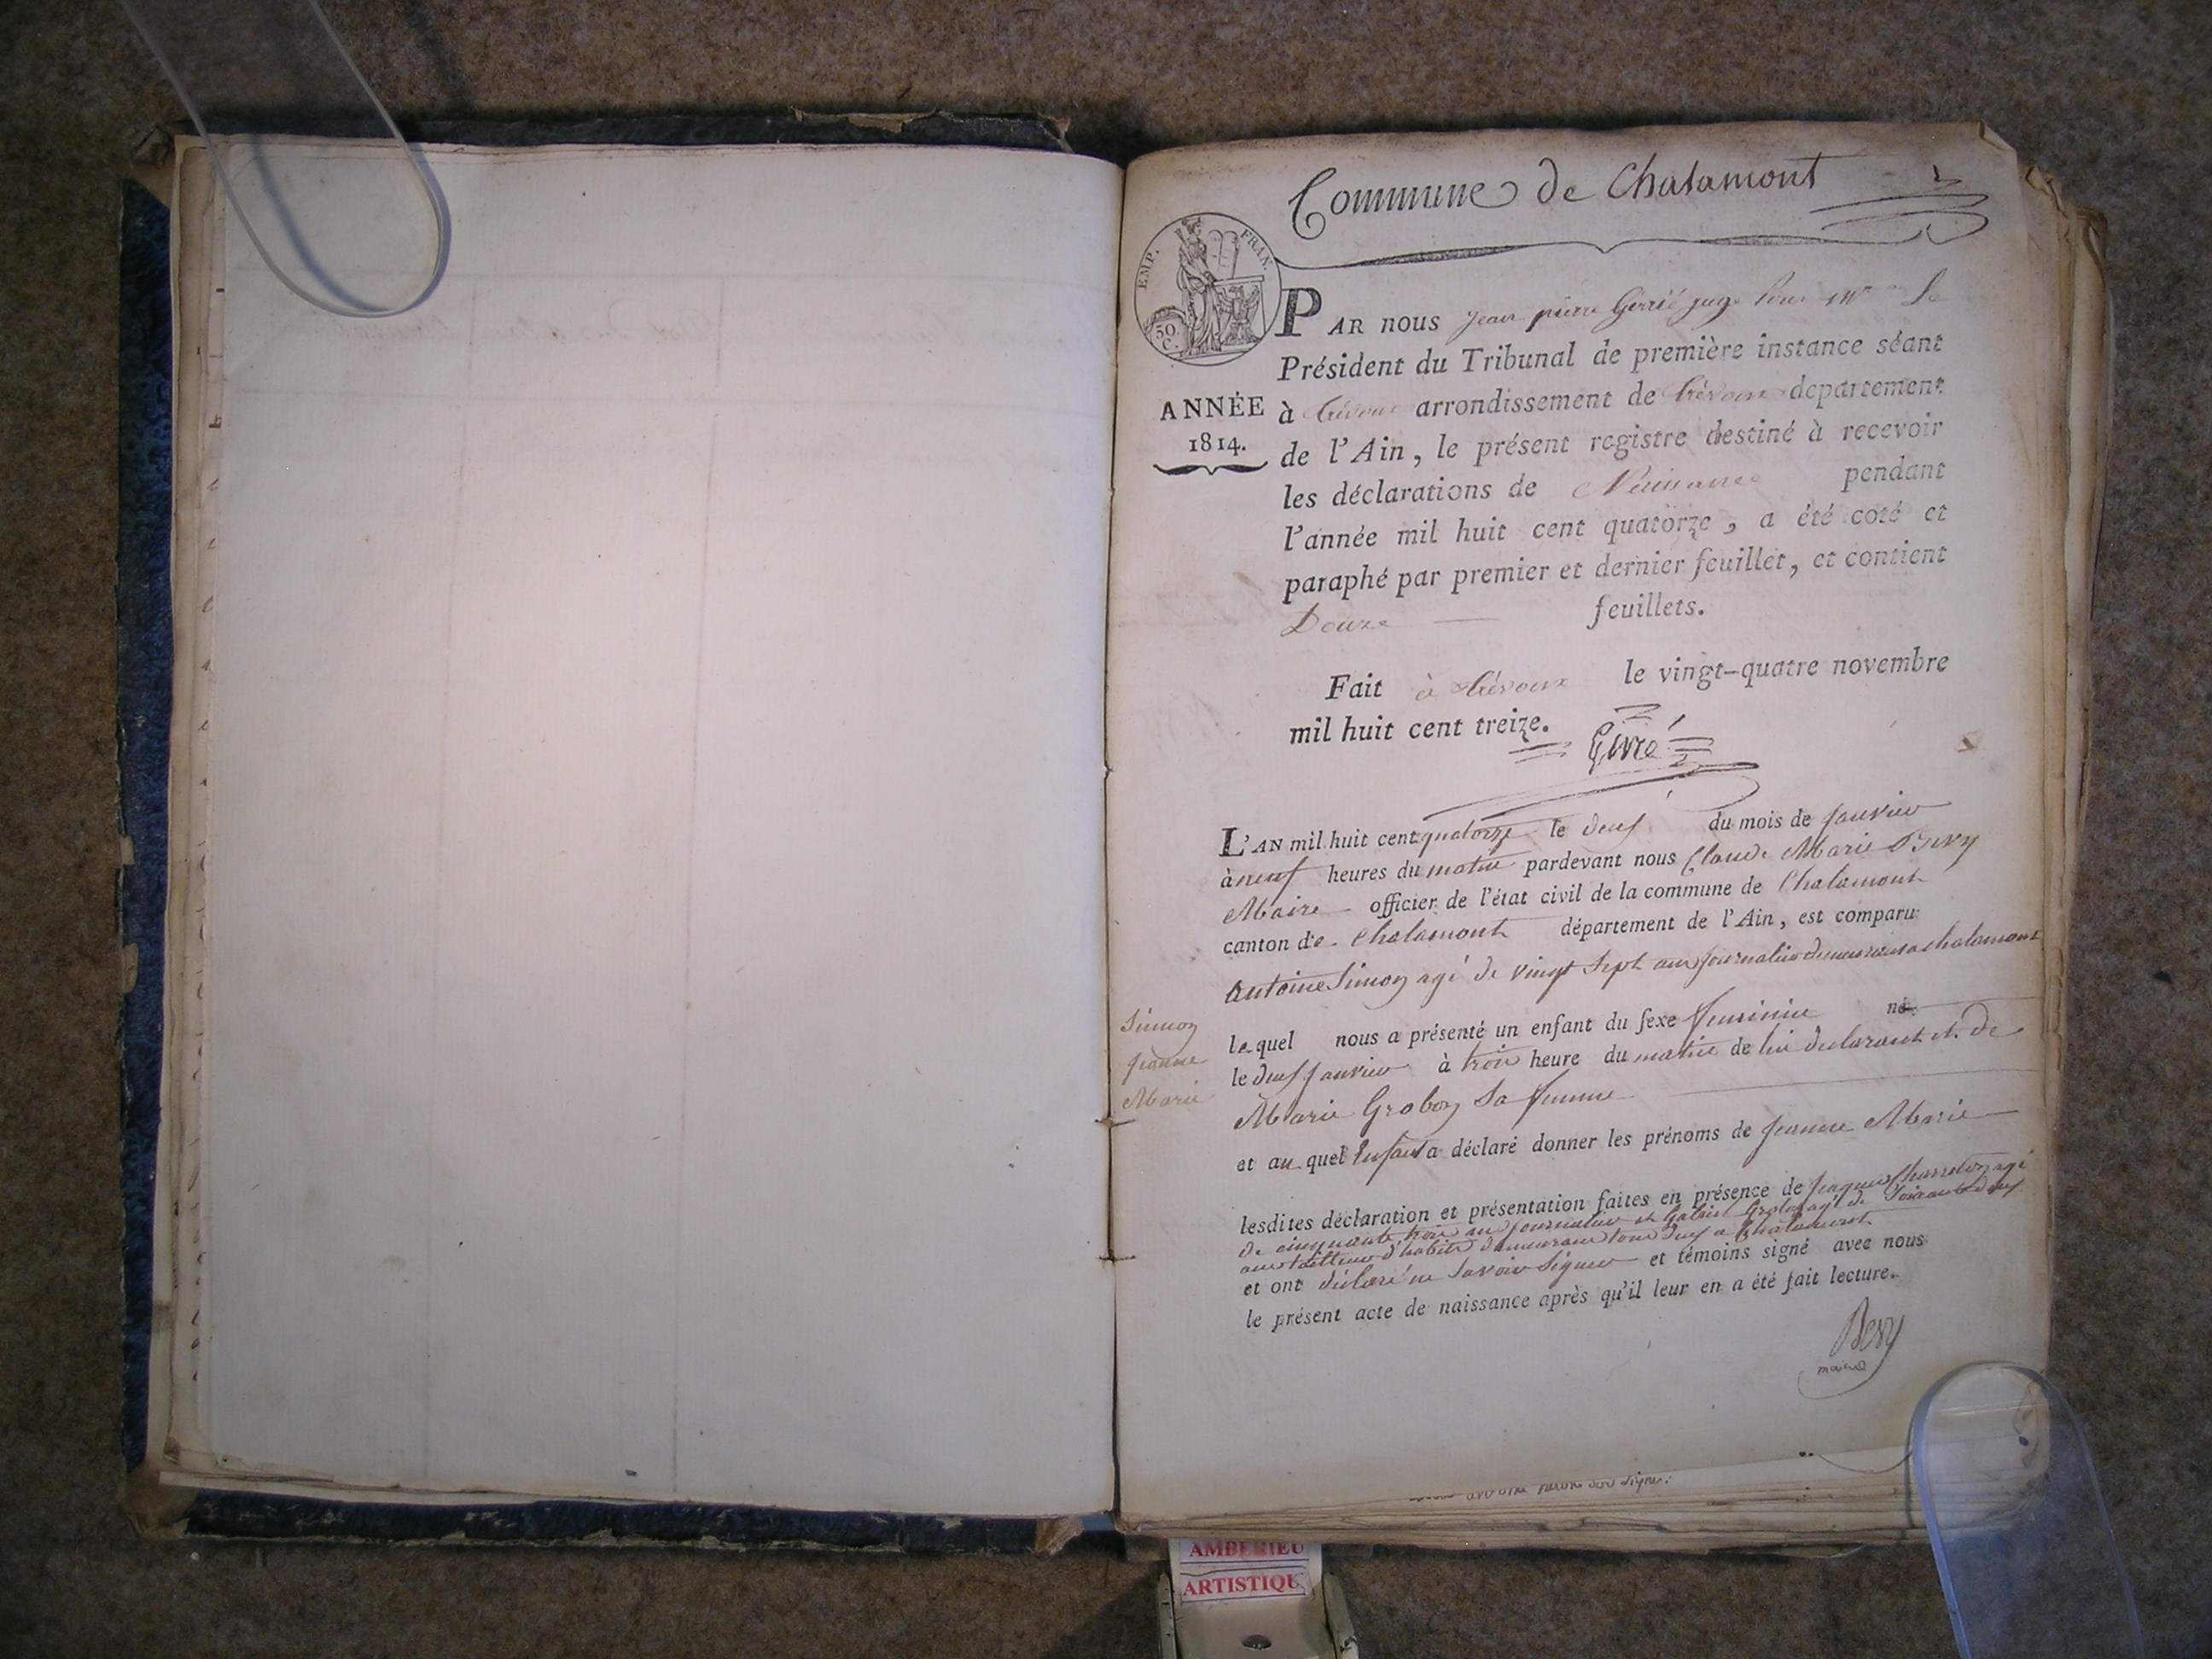 Commune de Chalamont
EMP. FRAN.
50. C.
ANNÉE
1814.
PAR nous Jean pierre juge Pour Mr Le
Président du Tribunal de première instance séant
à trévoux arrondissement de trévoux département
de l'Ain, le présent registre destiné à recevoir
les déclarations de Naissance pendant
l'année mil huit cent quatorze, a été coté et
paraphé par premier et dernier feuillet, et contient
Douze feuillets.
Fait à trévoux le vingt-quatre novembre
mil huit cent treize.
L'AN mil huit cent quatorze le deux du mois de janvier
à neuf heures du matin pardevant nous Claude Marie Bevy
Maire officier de l'état civil de la commune de Chalamont
canton de Chalamont département de l'Ain, est comparu
Antoine Simon agé de vingt sept ans journalier demeurant a chalamont
Simon
Jeanne
Marie
lequel nous a présenté un enfant du sexe feminin né
le deux janvier à trois heure du matin de lui declarant et de
Marie Grobon sa femme
et au quel Enfant a déclaré donner les prénoms de jeanne Marie
lesdites déclaration et présentation faites en présence de jaques Charreton agé
de cinquante trois ans journalier et Gabriel Grobon agé de soixante deux
ans tailleur d'habits demeurant tous deux a Chalamont
et ont déclaré ne savoir signer et témoins signé avec nous
le présent acte de naissance après qu'il leur en a été fait lecture.
Bevy
maire
AMBERIEU
ARTISTIQU